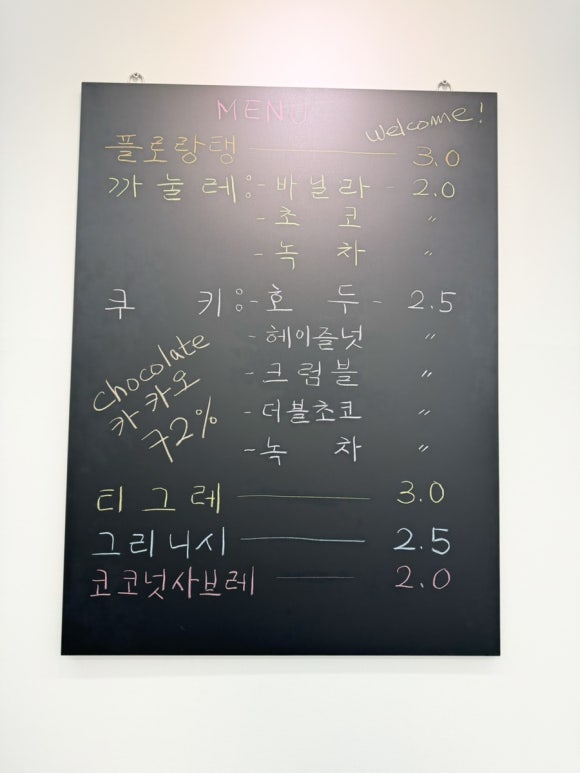 MENU
welcome!
플로랑탱 3.0
까눌레:-바닐라 - 2.0
-초코 〃
-녹차 〃
쿠키:-호두- 2.5
-헤이즐넛 〃
-크럼블 〃
-더블초코 〃
-녹차 〃
chocolate
카카오
72%
티그레 3.0
그리니시 2.5
코코넛사브레 2.0